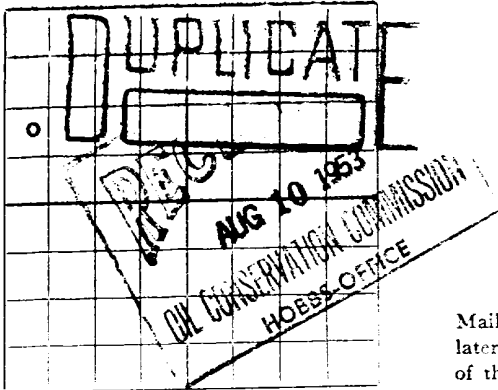 DUPLICATE
AUG 10 1953
OIL CONSERVATION COMMISSION
HOBBS OFFICE
Mail
later
of th